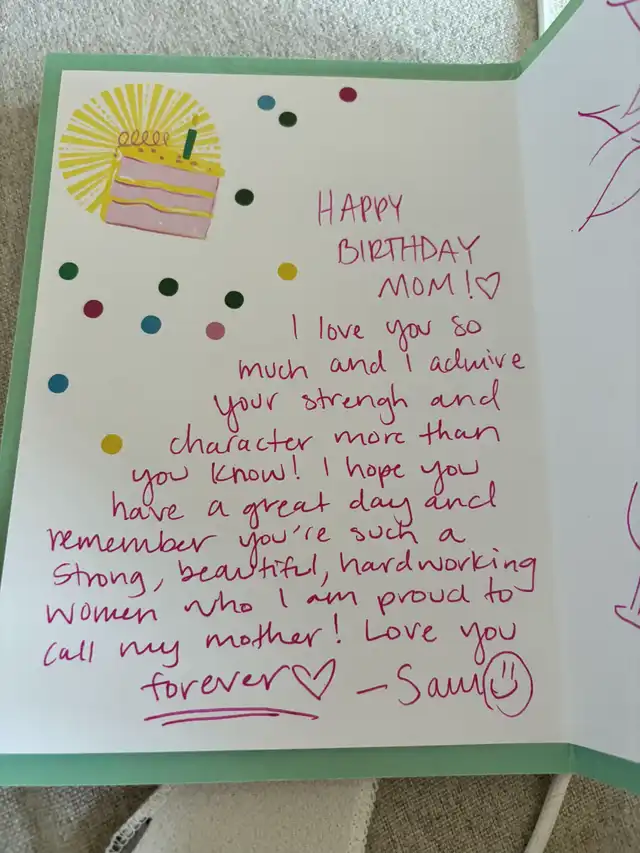 HAPPY
BIRTHDAY
MOM!♡
I love you so
much and I admire
your strengh and
character more than
you know! I hope you
have a great day and
remember you're such a
strong, beautiful, hardworking
women who I am proud to
call my mother! Love you
forever♡ - Sam☺